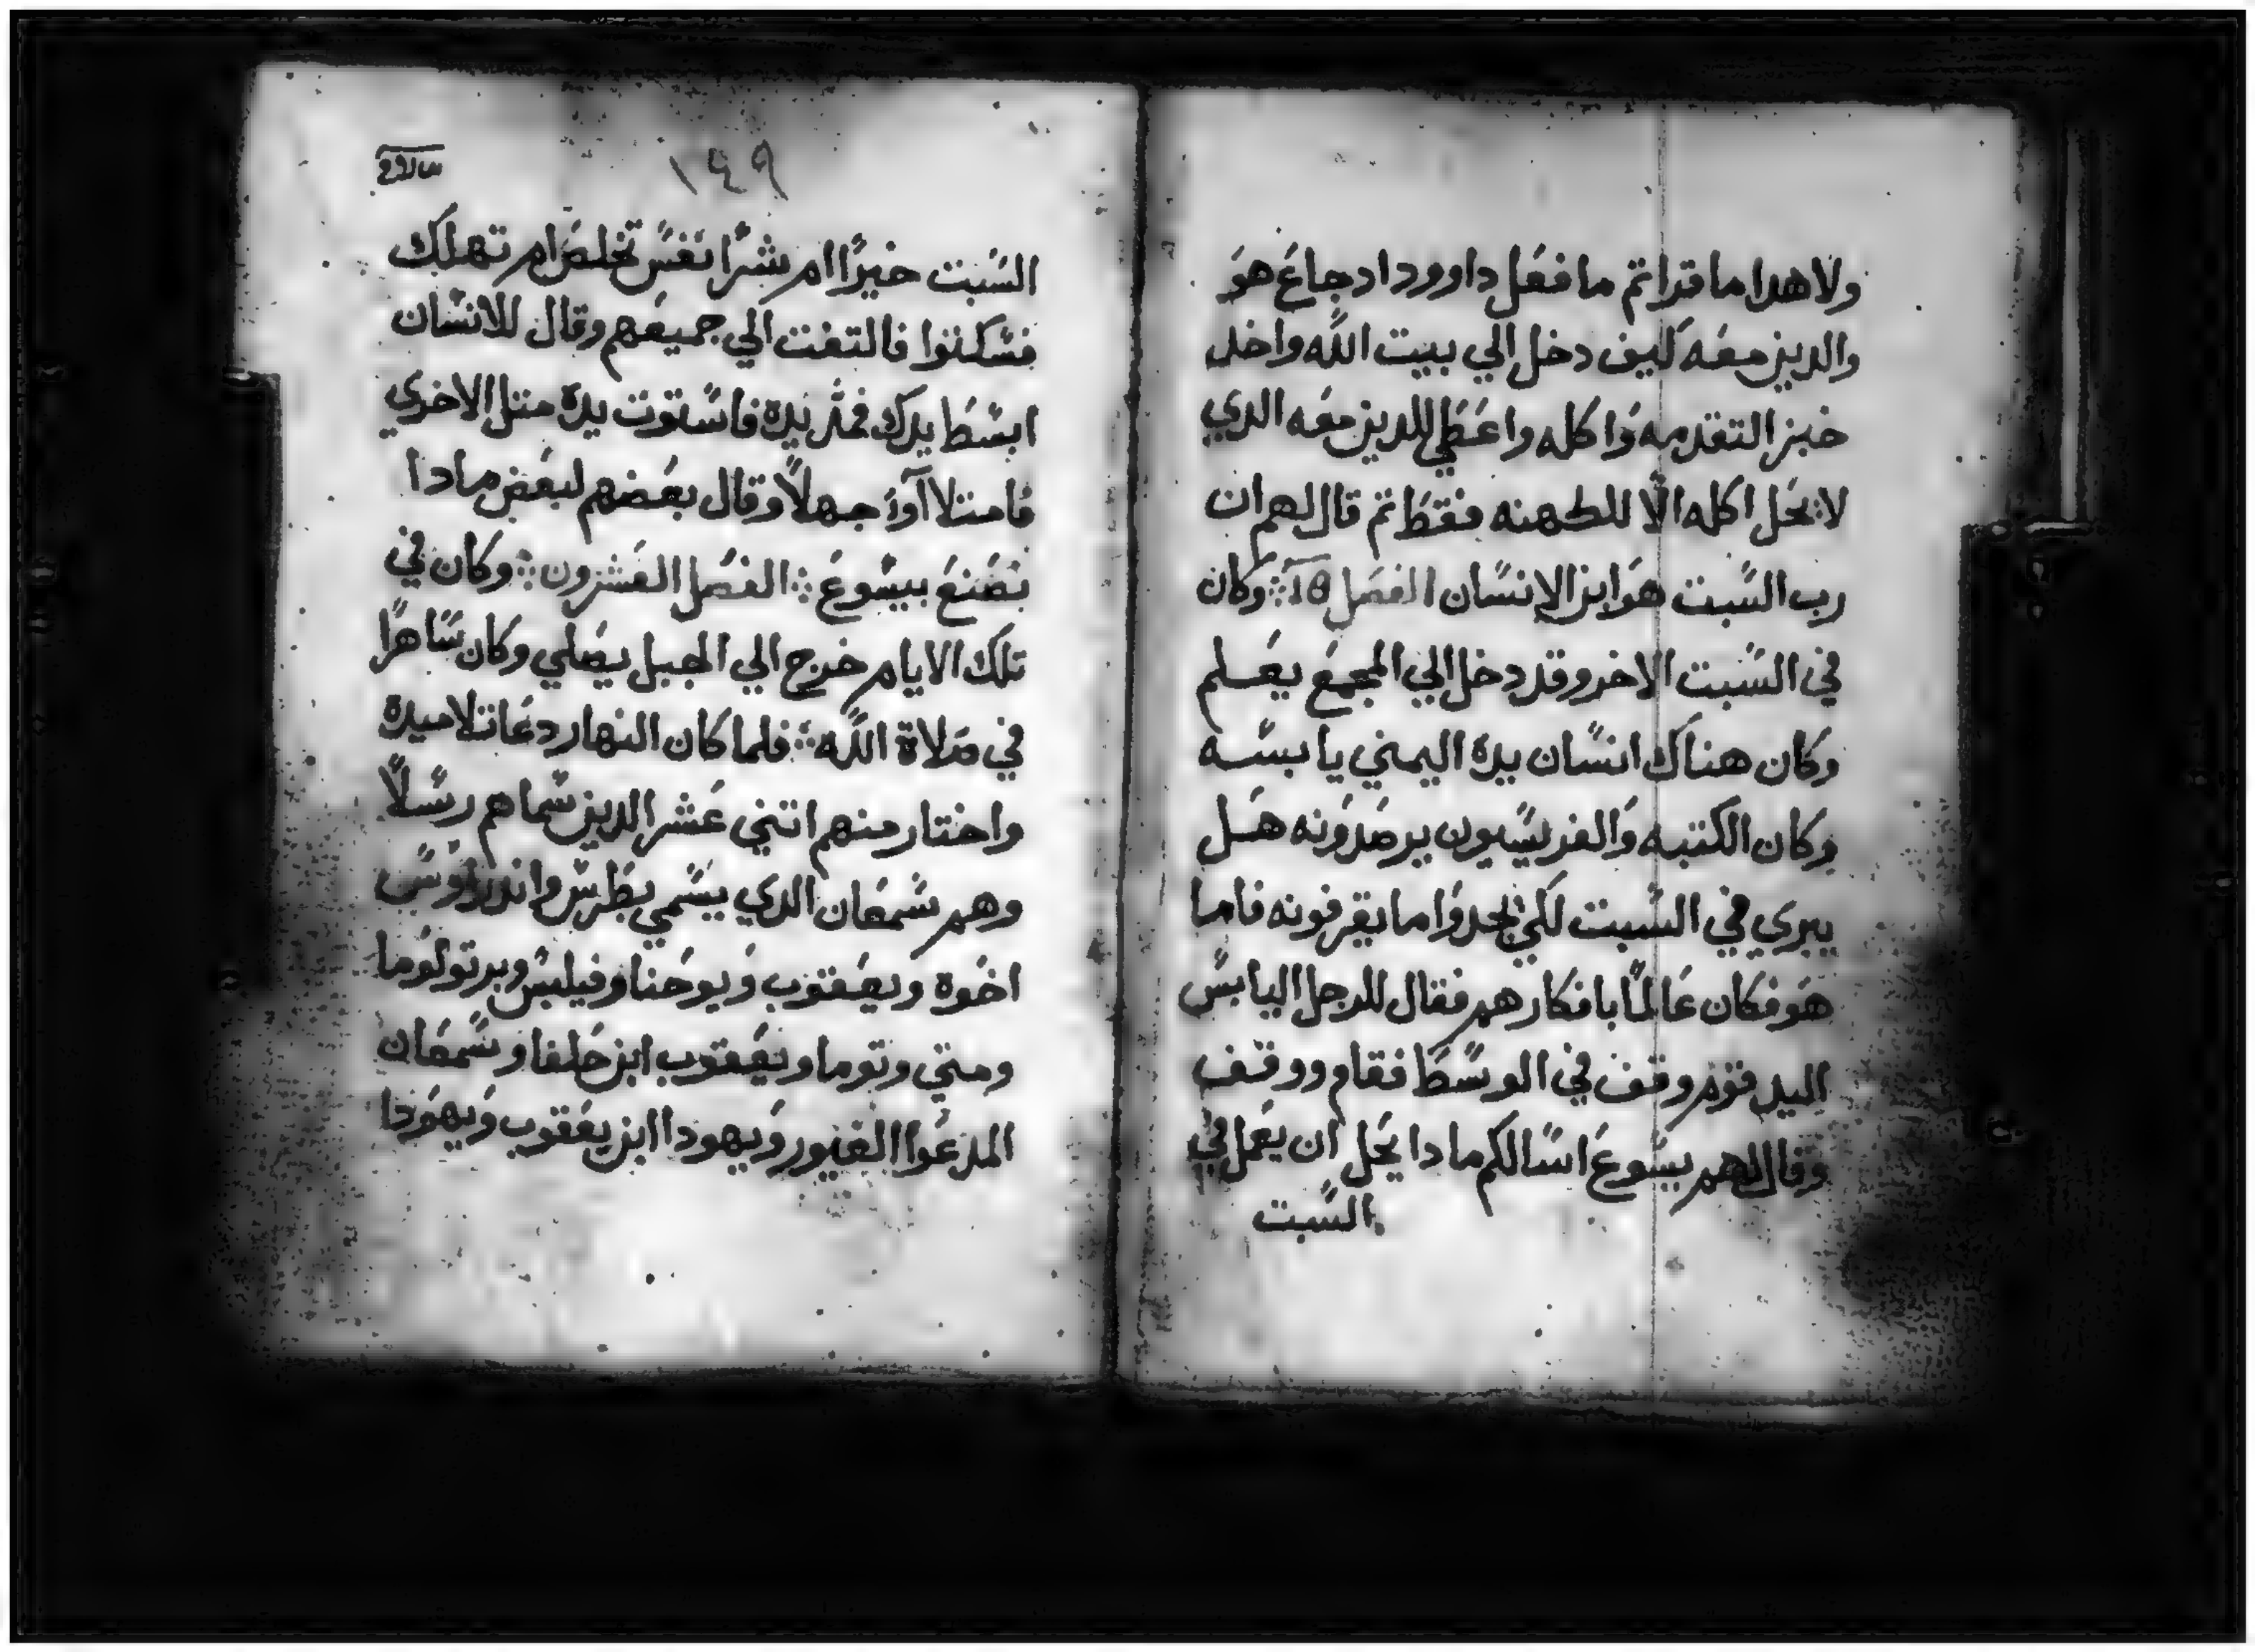 ولا هدا ما قراتم ما فعل داوود اد جاع هو
والدين معه كيف دخل الي بيت الله واخد
خبز التقدمه واكله واعطي للدين معه الدي
لا يحل اكله الا للكهنه فقط تم قال لهم ان
رب السبت هو ابن الانسان الفصل ⁘ وكان
في السبت الاخر وقد دخل الي المجمع يعلم
وكان هناك انسان يده اليمني يابسه
وكان الكتبه والفريسيون يرصدونه هل
يبري في السبت لكي يجدوا ما يقرفونه فاما
هو فكان عالما بافكارهم فقال للرجل اليابس
اليد قوم وقف في الوسط فقام ووقف
وقال لهم يسوع اسالكم مادا يحل ان يعمل في
السبت
١٤٩
السبت خيرا ام شرا نفس تخلص ام تهلك
فسكتوا فالتفت الي جميعهم وقال للانسان
ابسط يدك فمد يده فاستوت يده متل الاخري
فامتلاآوا جهلا وقال بعضهم لبعض مادا
نصنع بيسوع ⁘ الفصل العشرون ⁘ وكان في
تلك الايام خرج الي الجبل يصلي وكان ساهرا
في صلاة الله ⁘ فلما كان النهار دعا تلاميده
واختار منهم اتني عشر الدين سماهم رسلا
وهم سمعان الدي يسمي بطرس واندراوس
اخوه ويعقوب ويوحنا وفيلبس وبرتولوما
ومتي وتوما ويعقوب ابن حلفا وسمعان
المدعوا الغيور ويهودا ابن يعقوب ويهودا